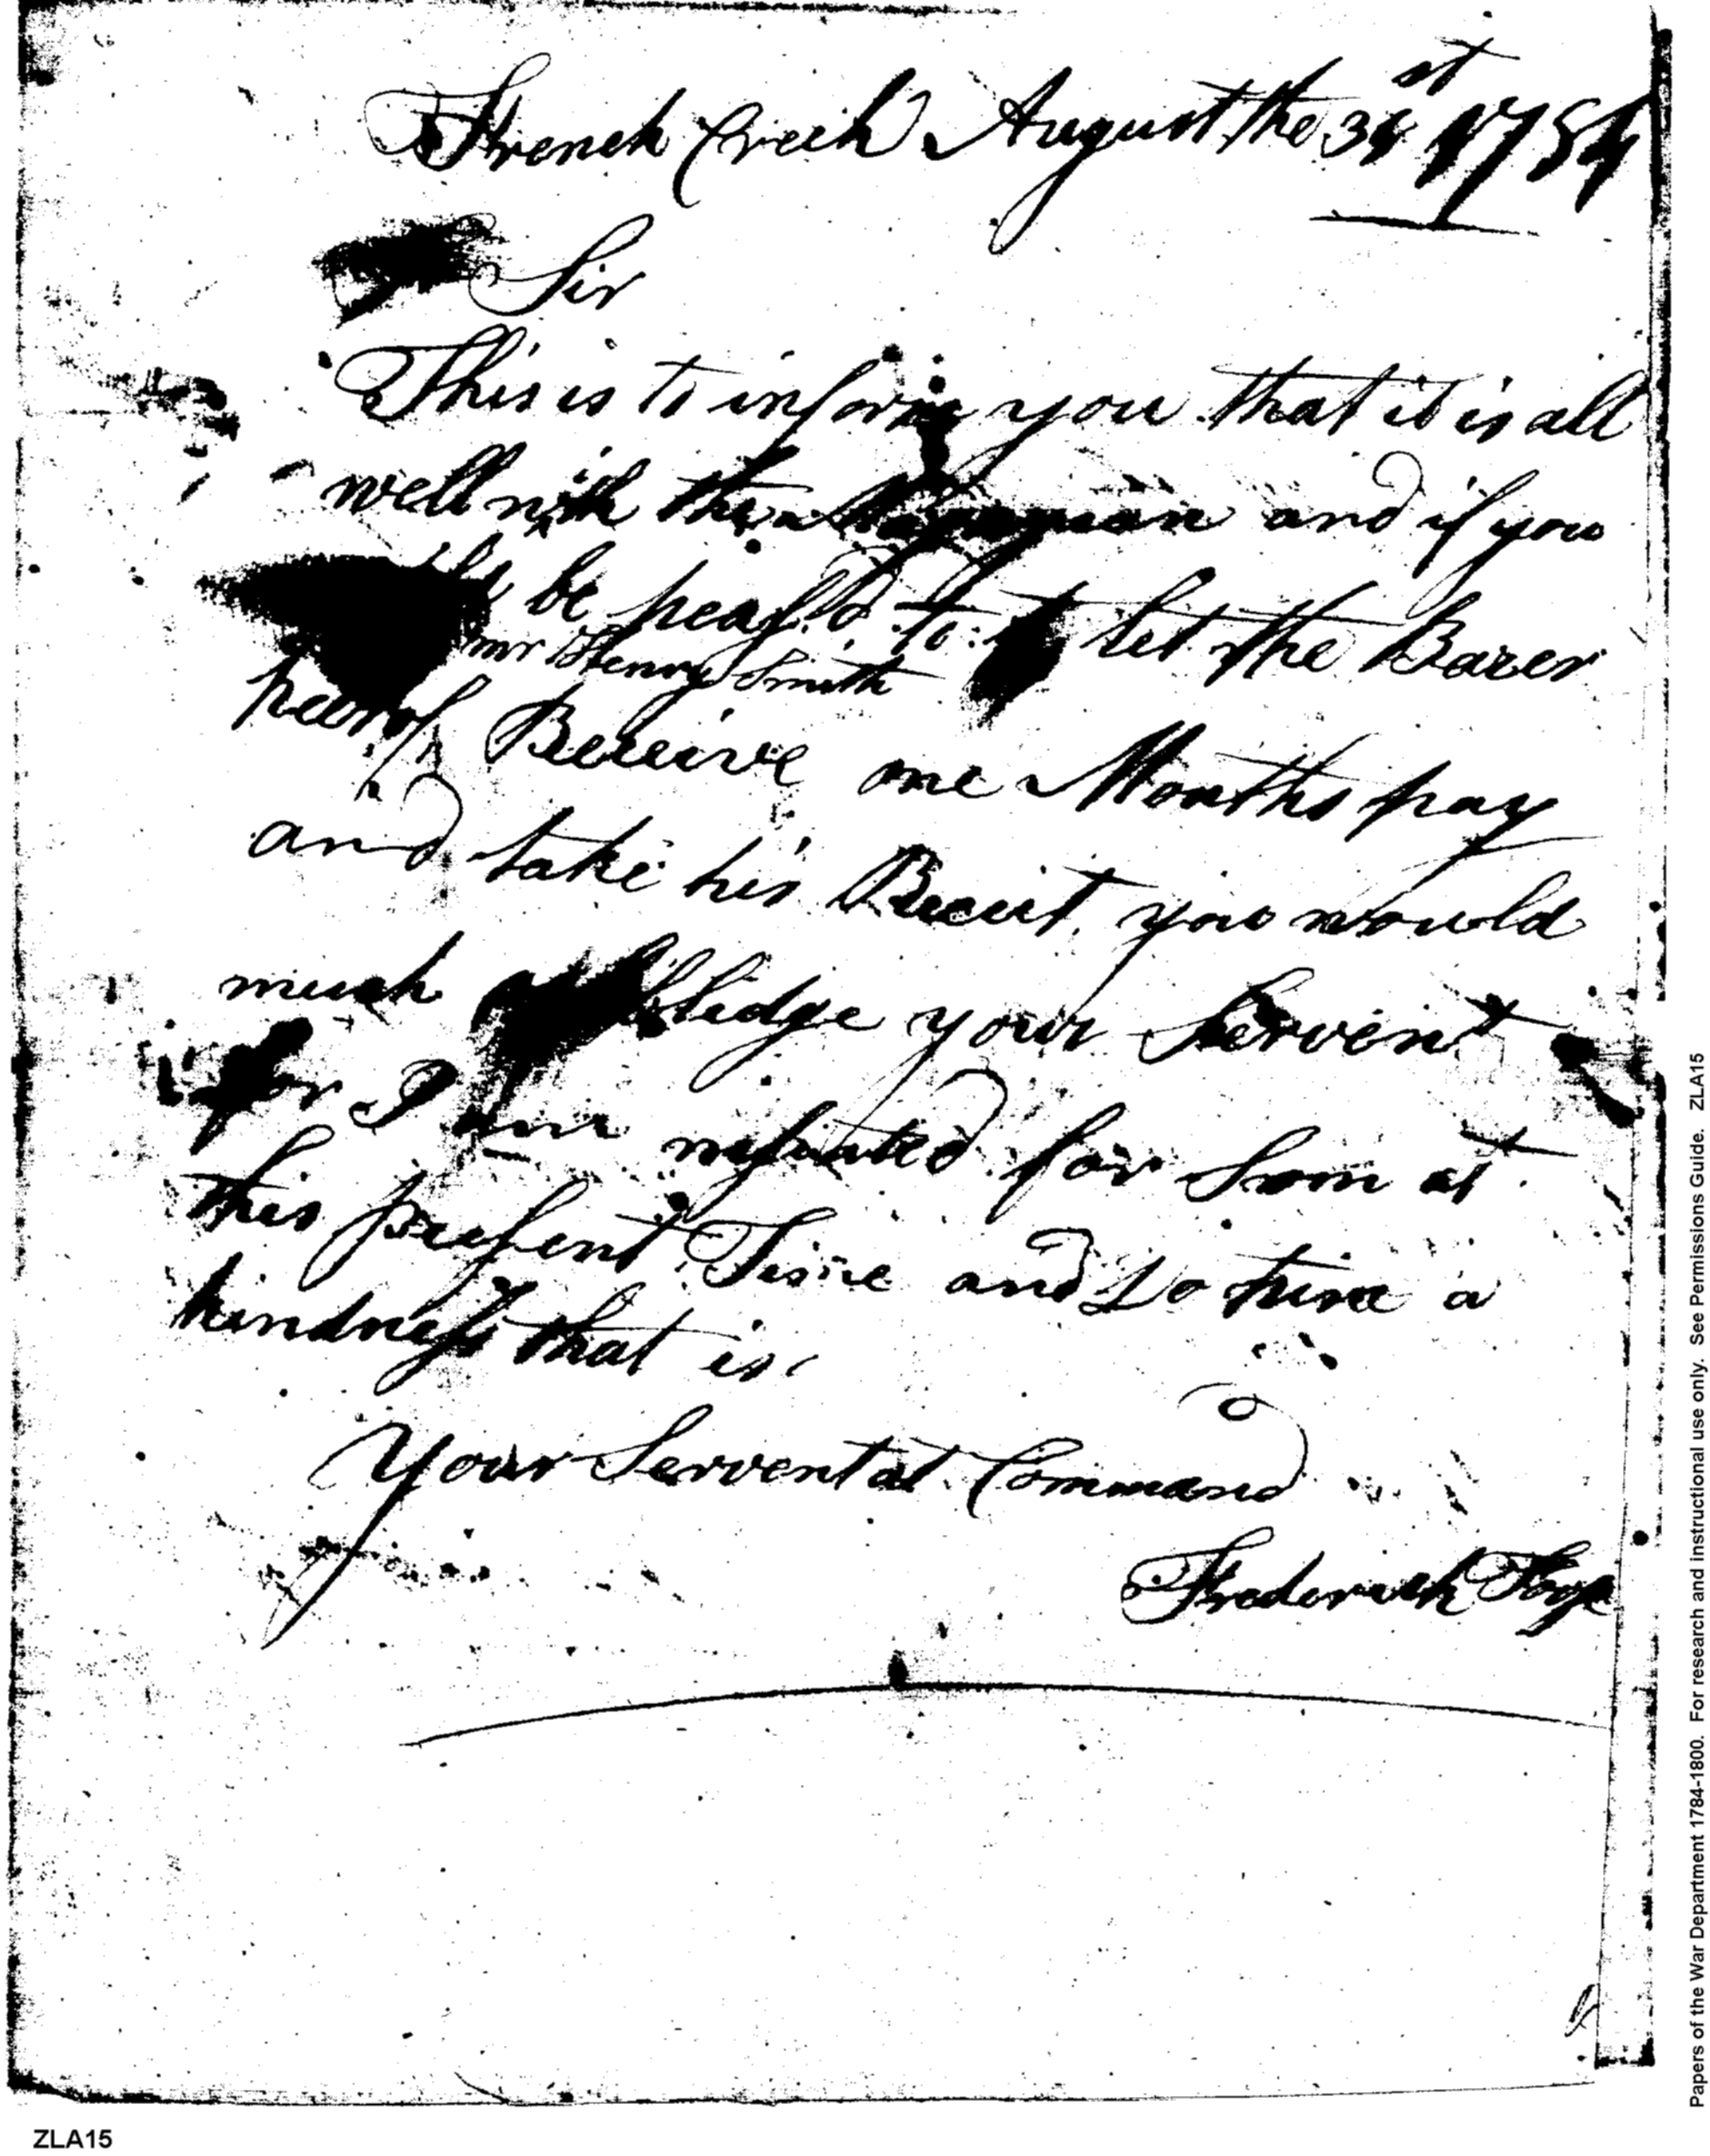 French Creek August the 31st 1784
Sir
This is to inform you that it is all
well with the and if you
be pleasd to let the Barer
mr Henry Smith
hearof Receive one Months pay
and take his Receit, you would
much obbledge your Servent
for I am nesiated for Som at
this present Time and So hive a
kindness that is
Your Servent at Command
Frederick
Papers of the War Department 1784-1800. For research and instructional use only. See Permissions Guide. ZLA15
ZLA15